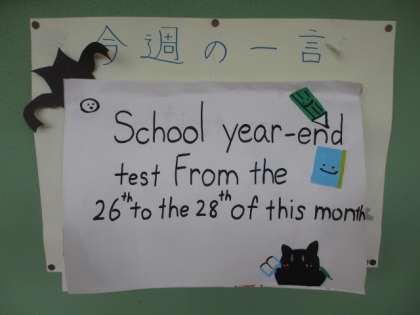 今週の一言
School year-end
test From the
26th to the 28th of this month